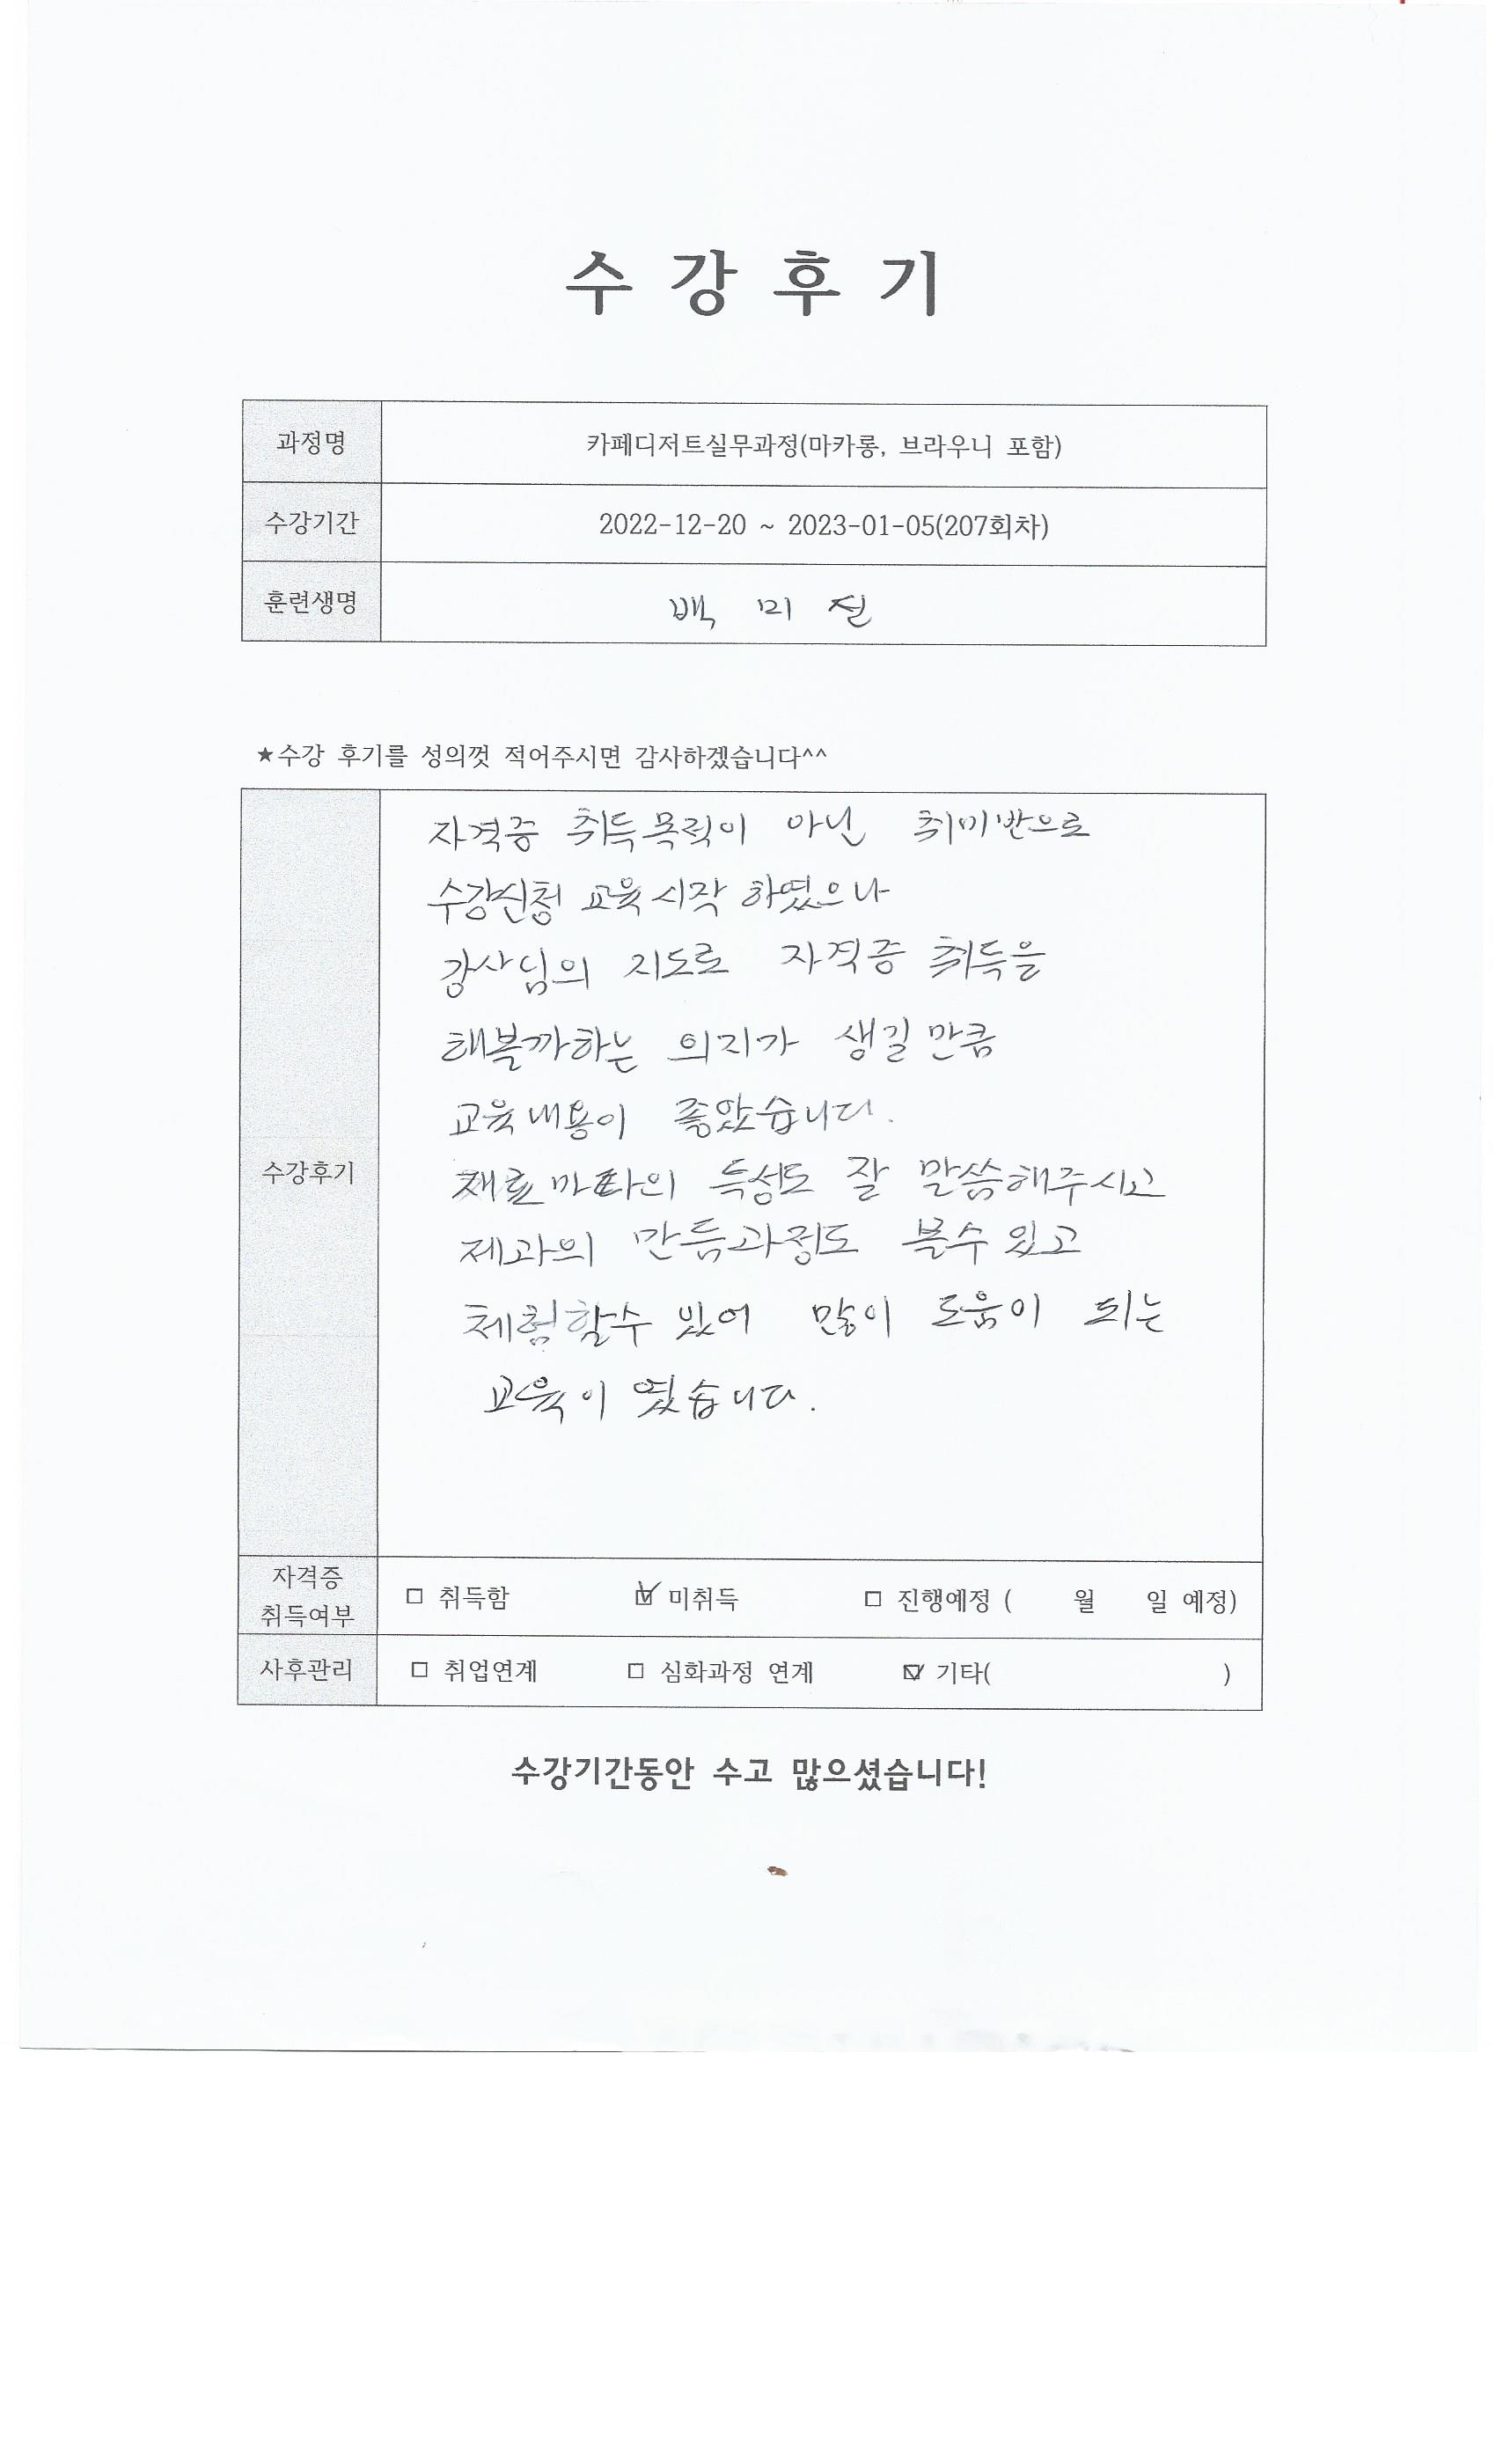 수 강 후 기
과정명 카페디저트실무과정(마카롱, 브라우니 포함)
수강기간 2022-12-20 ~ 2023-01-05(207회차)
훈련생명 백 미
★수강 후기를 성의껏 적어주시면 감사하겠습니다^^
수강후기
자격증 취득목적이 아닌 취미반으로
수강신청 교육시작 하였으나
강사님의 지도로 자격증 취득을
해볼까하는 의지가 생길만큼
교육내용이 좋았습니다.
재료마다의 특성도 잘 말씀해주시고
제과의 만듬과정도 볼수있고
체험할수 있어 많이 도움이 되는
교육이 였습니다.
자격증 취득여부 □ 취득함 ☑ 미취득 □ 진행예정 ( 월 일 예정)
사후관리 □ 취업연계 □ 심화과정 연계 ☑ 기타( )
수강기간동안 수고 많으셨습니다!